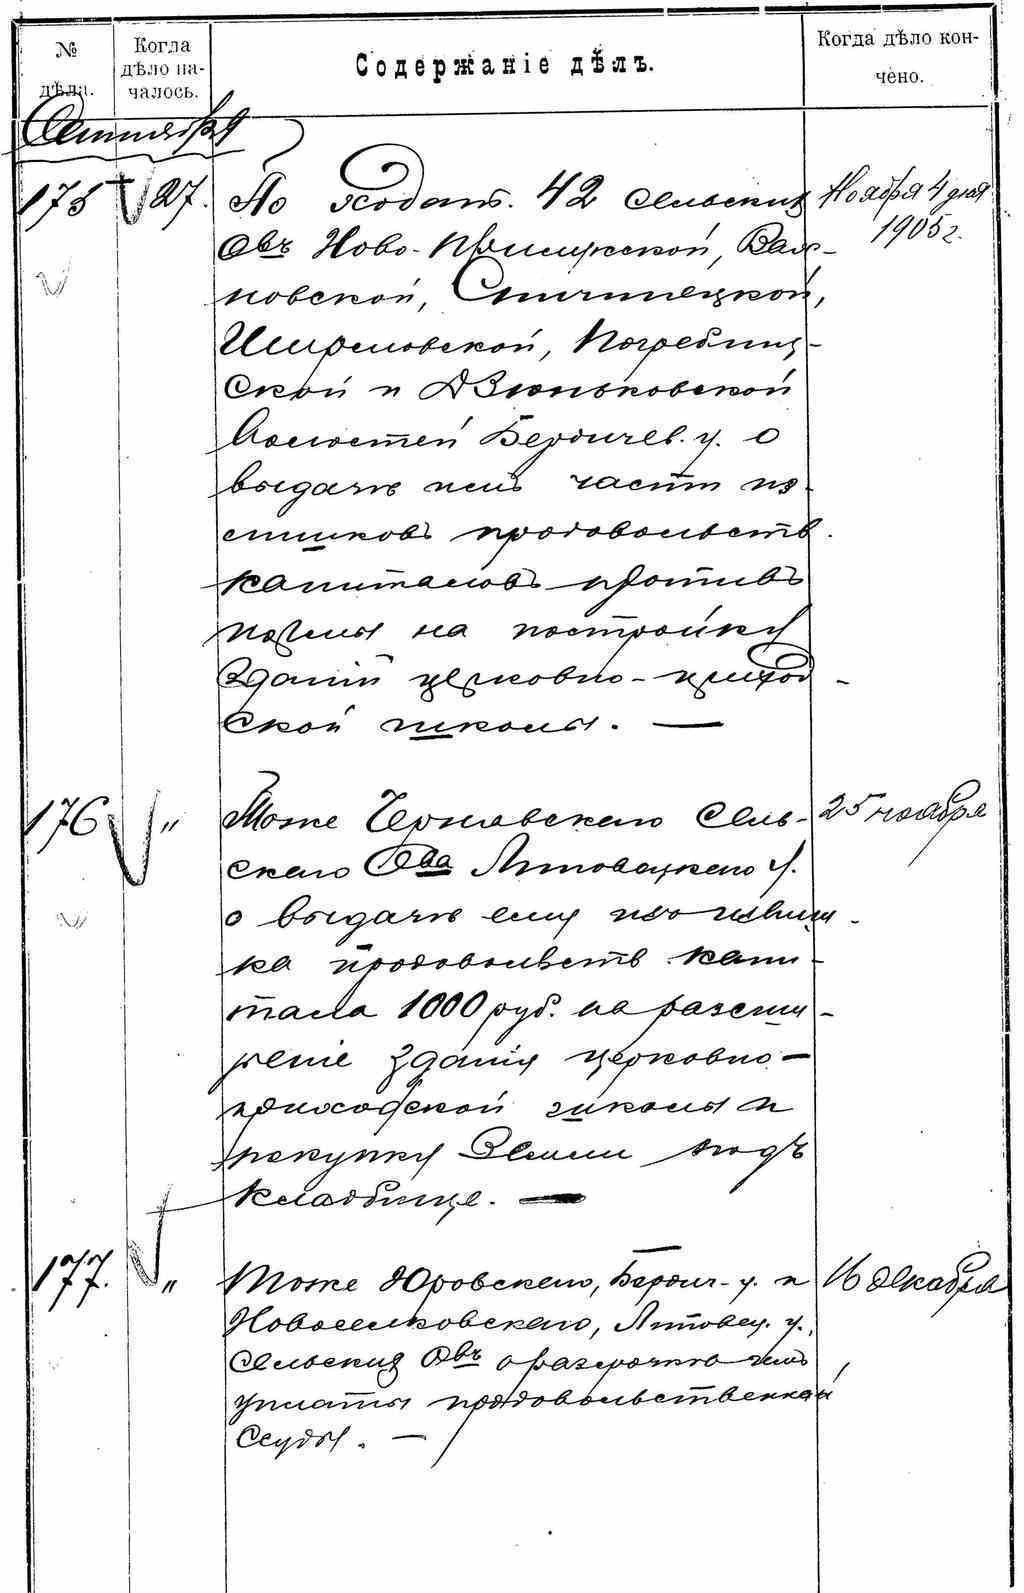 № дѣла.
Когда дѣло на-
чалось.
Содержаніе дѣлъ.
Когда дѣло кон-
чено.
Сентября
175 27. По ходат. 42 сельских Ноября 4 дня
Овъ Ново-Прилукской, Вах- 1905 г.
новской, Спичинецкой,
Ширмовской, Погребищ-
ской и Дзюньковской
Волостей Бердичев. у. о
выдачѣ имъ части из-
лишковъ продовольств.
капиталовъ противъ
нормы на постройку
зданій церковно-приход-
ской школы. —
176 " Тоже Чернявскаго Сель- 25 ноября
скаго Ова Липовецкаго у.
о выдачѣ ему изъ излиш-
ка продовольств. капи-
тала 1000 руб. на расши-
реніе зданія церковно-
приходской школы и
покупку земли подъ
кладбище. —
177. " Тоже Юровскаго, Бердич. у. и 16 декабря
Новоселковскаго, Липовец. у.,
Сельских Овъ о разсрочкѣ имъ
уплаты продовольственной
ссуды. —